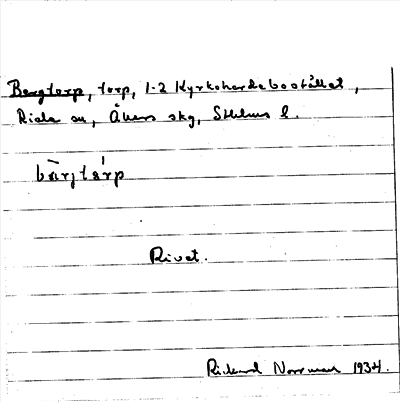 Bergtorp, torp, 1-2 Kyrkoherdebostället,
Riala sn, Åkers skg, Sthlms l.
bær,tårp
Rivet.
Rickard Norrman 1934.